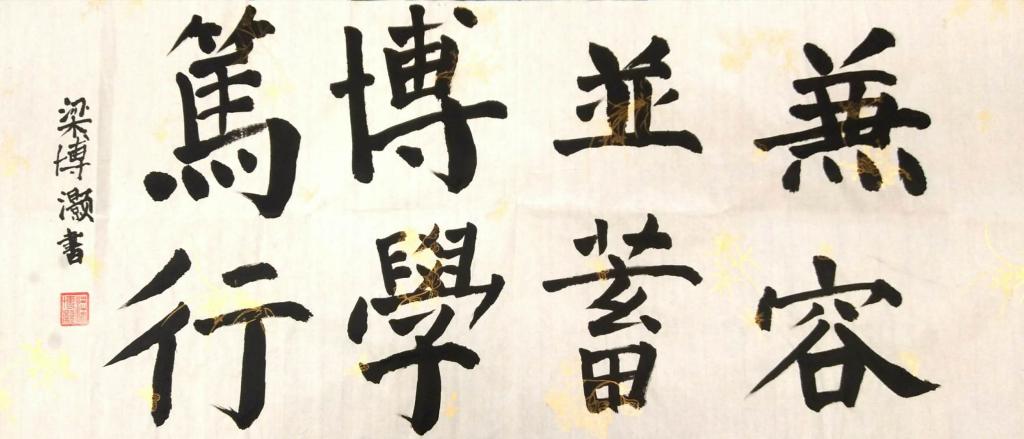 兼容
並蓄
博學
篤行
梁博灝书